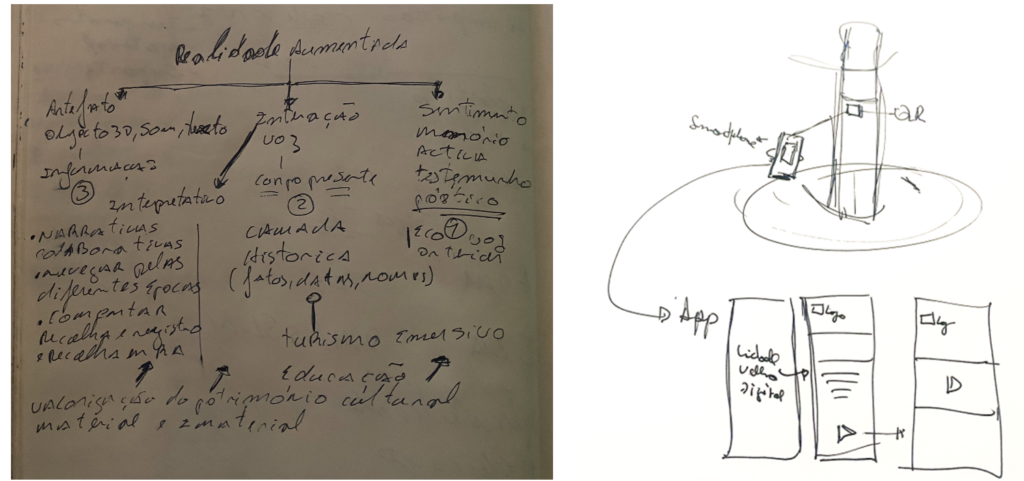 Realidade Aumentada
Artefato
objeto 3D, som, texto
informação
3
Interação
voz
corpo presente
2
Sentimento
memória
activa
testemunho
poético
1
Eco voz
Interpretativo
• Narrativas
colaborativas
• navegar pelas
diferentes épocas
• comentar
recolha e registro
e recolha em RA
Camada
Historica
(fatos, datas, nomes)
turismo Emersivo
Educação
valorização do património cultural
material e imaterial
Smartphone
QR
App
Cidade
Velha
Digital
Logo